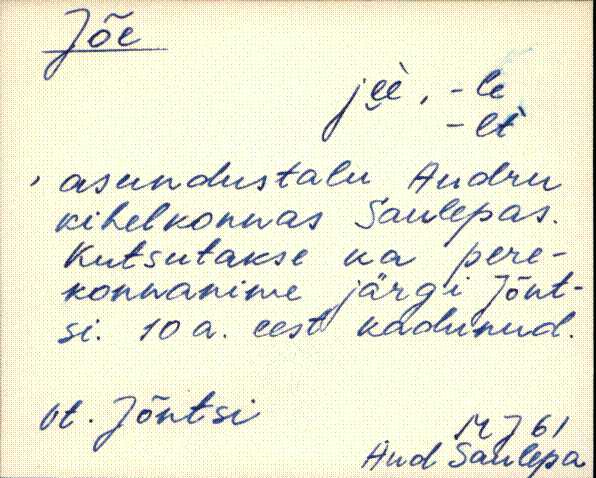 Jõe
je̬è, -le
-lt
asundustalu Audru
kihelkonnas Saulepas.
Kutsutakse ka pere-
konnanime järgi Jõnt-
si. 10 a. eest kadunud.
vt. Jõntsi
M J 61
Aud Saulepa